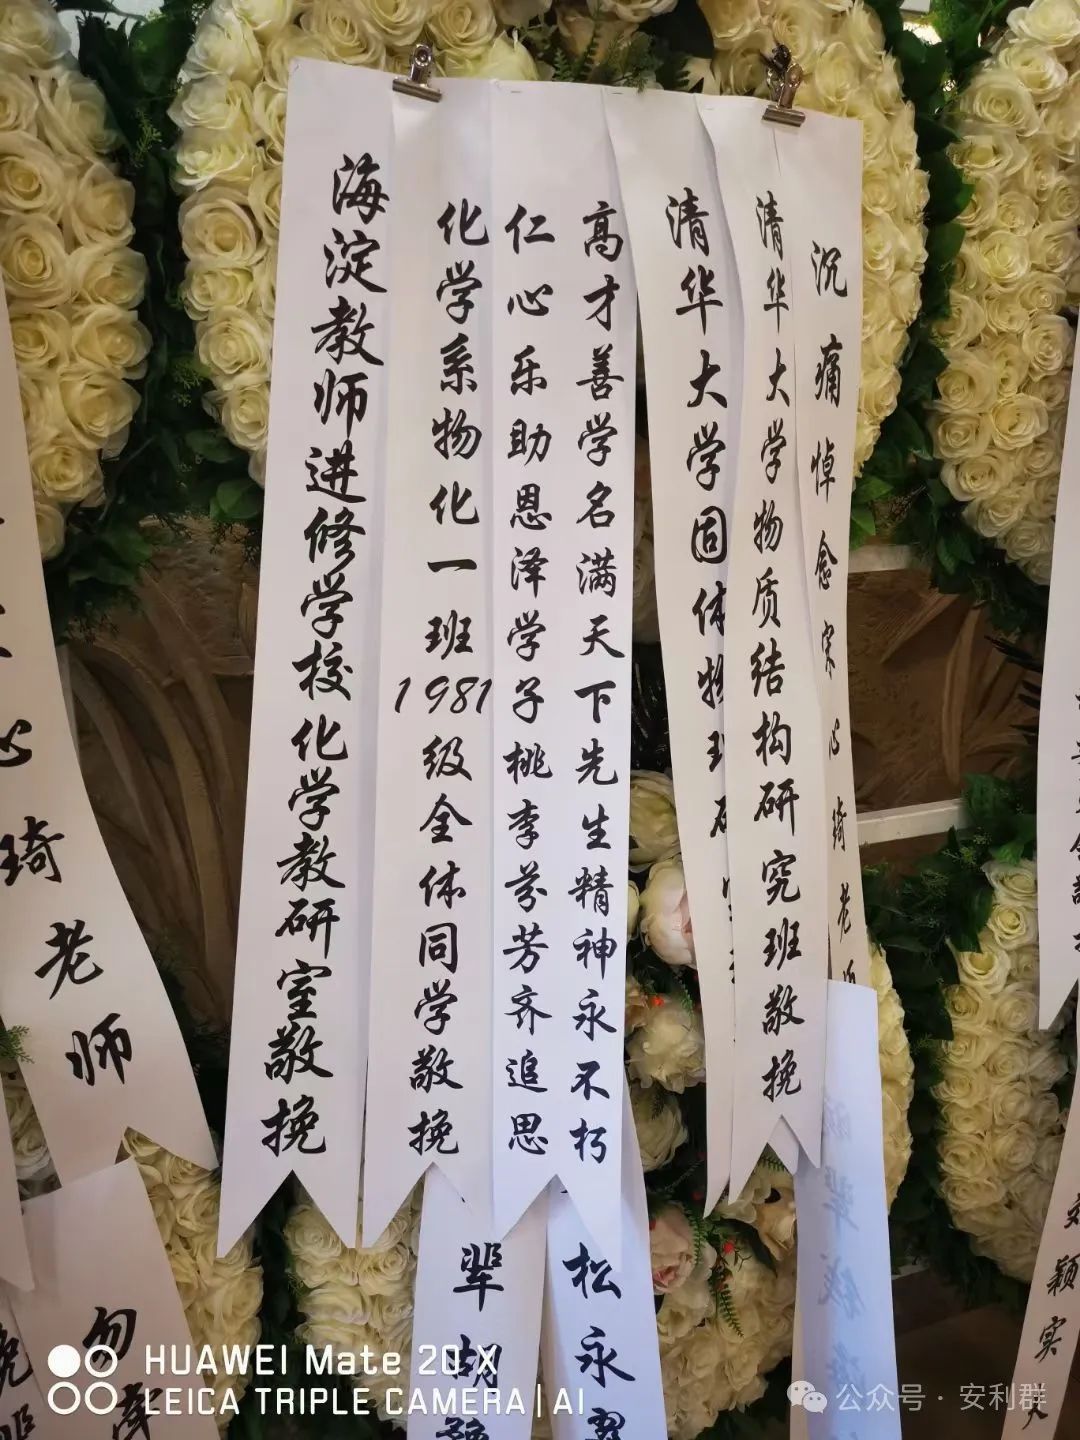 海淀教师进修学校化学教研室敬挽
化学系物化一班1981级全体同学敬挽
仁心乐助恩泽学子桃李芬芳齐追思
高才善学名满天下先生精神永不朽
清华大学固体物理研
清华大学物质结构研究班敬挽
沉痛悼念宋心琦老师
心琦老师
辈胡
松永
勿
颖实
HUAWEI Mate 20 X
LEICA TRIPLE CAMERA | AI
公众号·安利群